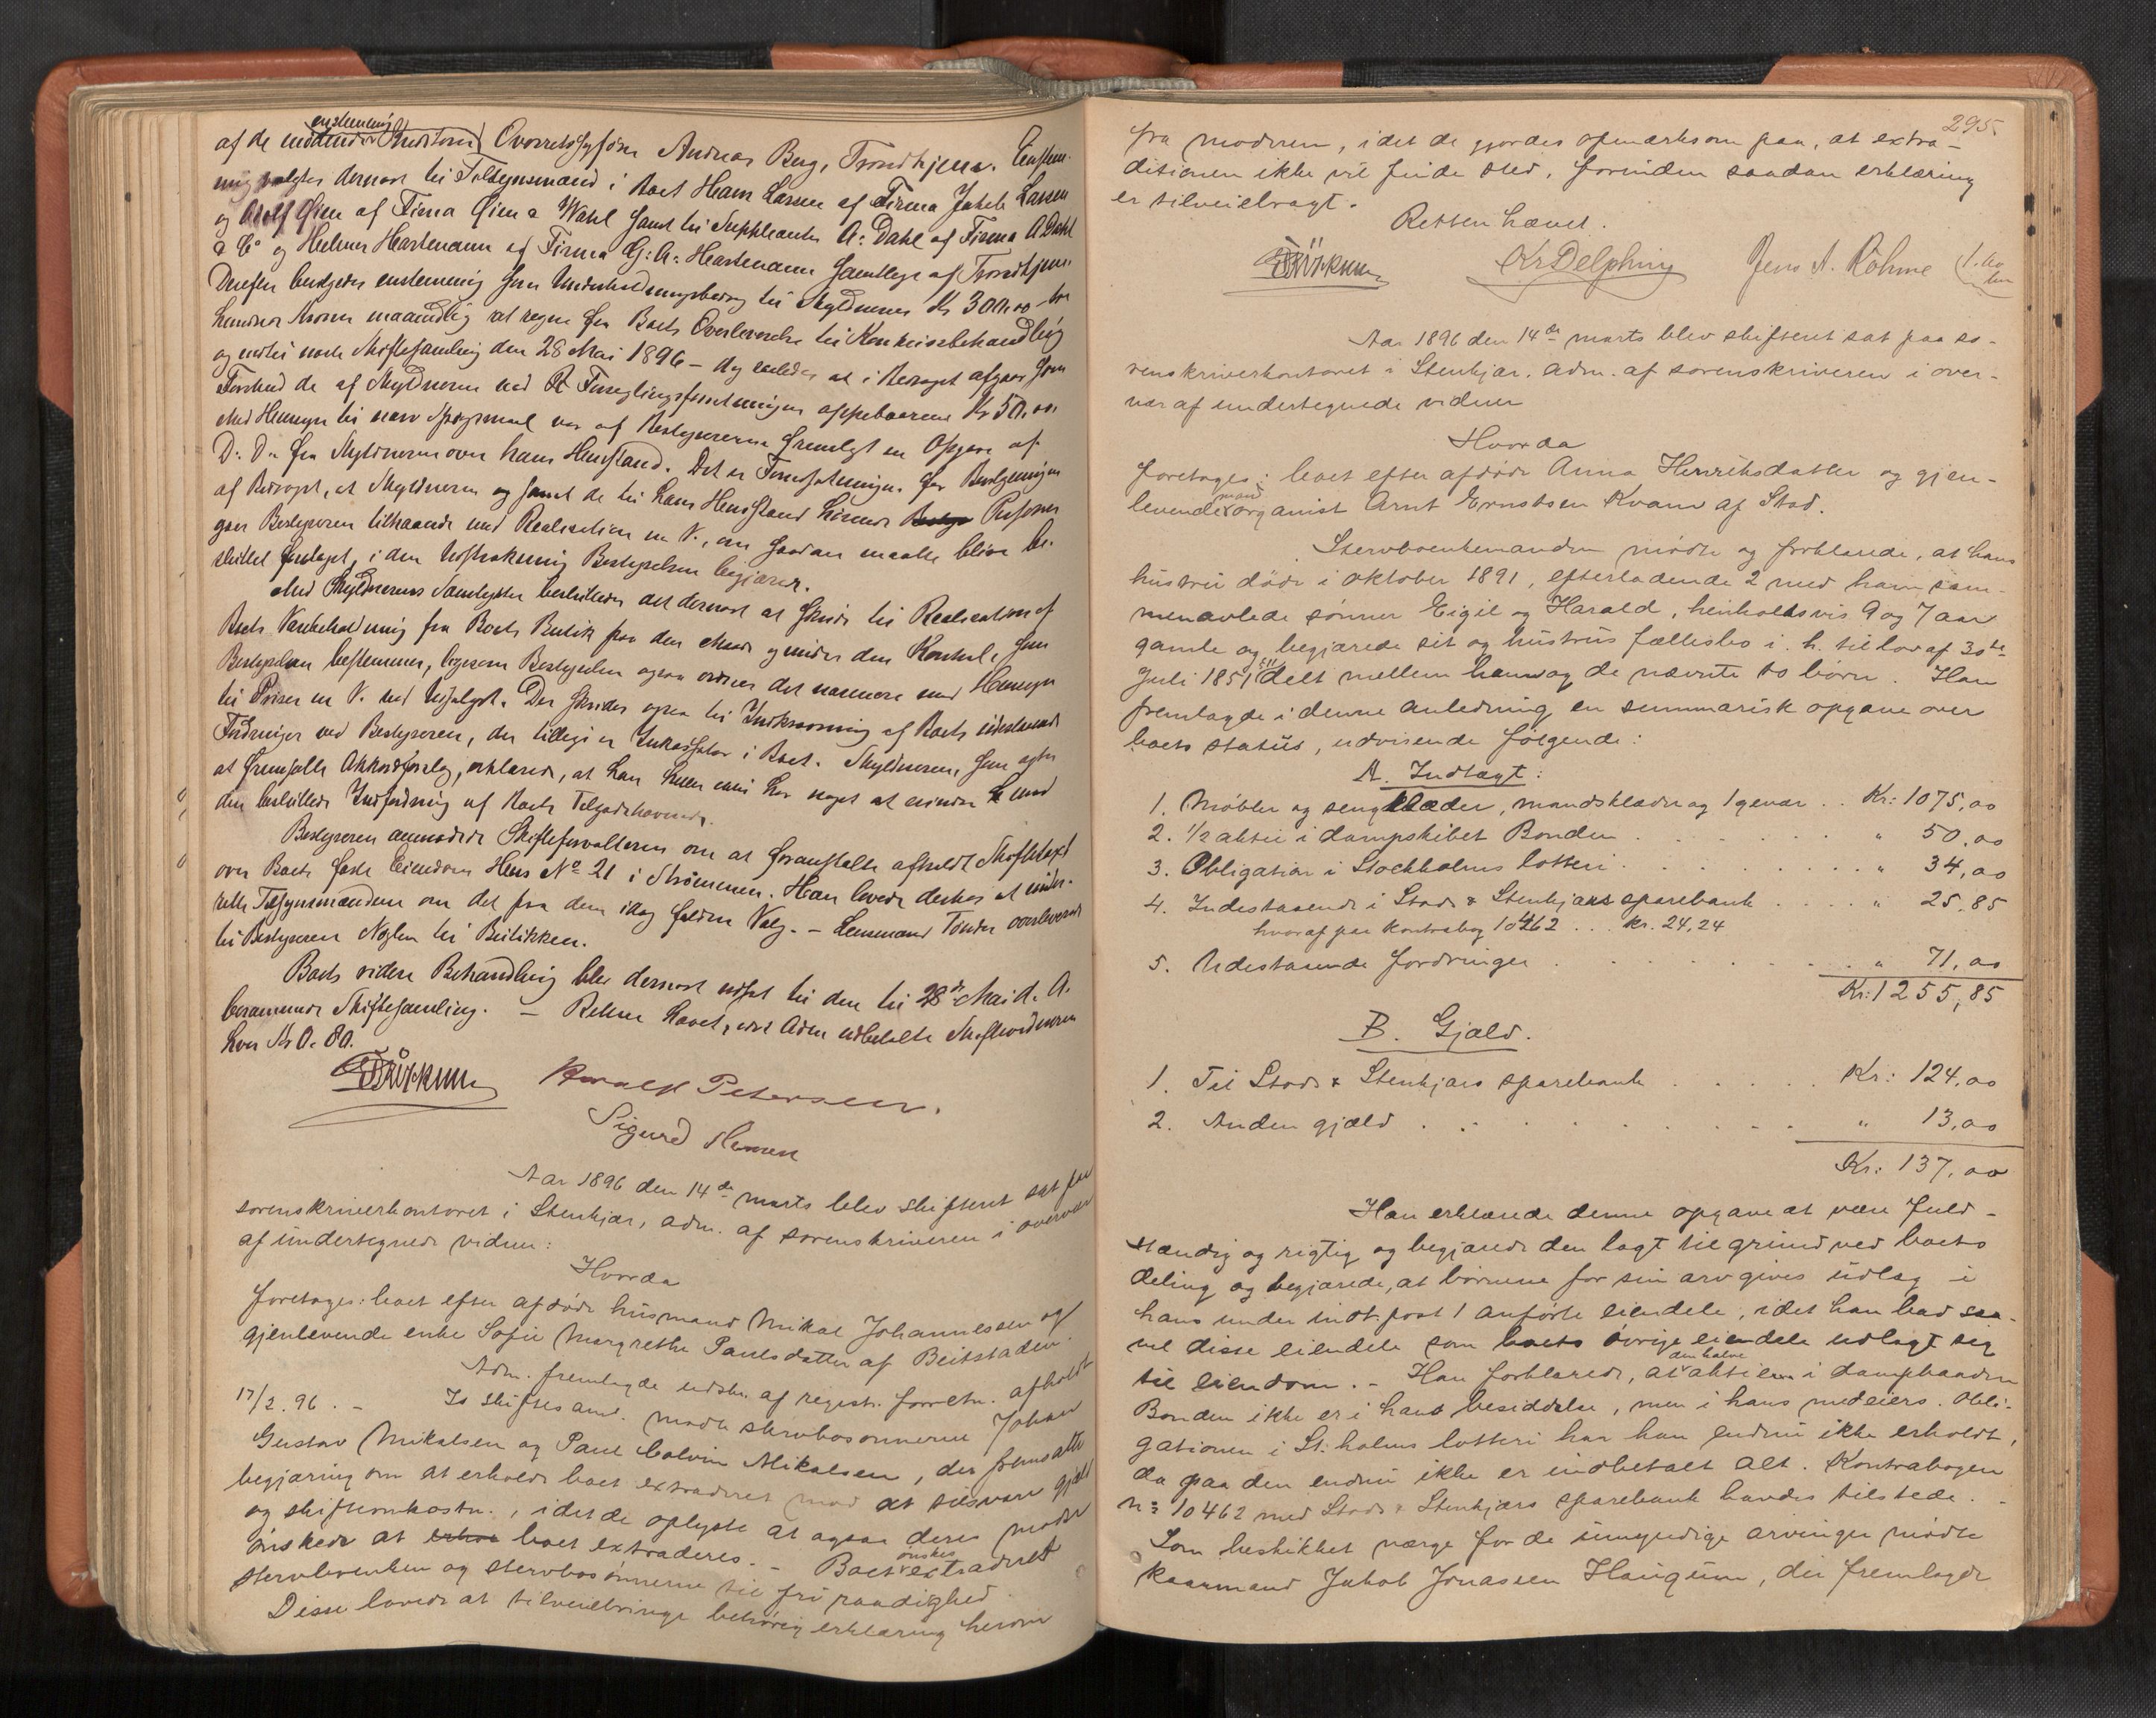 enstemmig
af de mødende Kreditorer Overretssagfører Andreas Berg, Trondhjem. Enstem-
mig valgtes dernæst til Tilsynsmænd i Boet Hans Larssen af Firma Jakob Larssen
og Adolf Øien af Firma Øien & Wahl samt til Suppleanter A: Dahl af Firma A Dahl
& Co og Helmer Hartmann af Firma G: A: Hartmann samtlige af Trondhjem.
Derefter bevilgedes enstemmig som Underholdningsbidrag til Skyldneren Kr 300,00 tre
hundrede Kroner maanedlig at regne fra Boets Overleverelse til Konkursbehandling
og indtil næste Skiftesamling den 28 Mai 1896 – dog saaledes at i Beløpet afgaar som
Forskud de af Skyldneren ved Forseglingsforretningen oppebaarne Kr 50,00.
Med Hensyn til nævnte Spørgsmaal var af Bestyreren fremlagt en Opgave af
D: D: fra Skyldneren over hans Husstand. Det er Forudsætningen for Bevilgningen
af Bidraget, at Skyldneren og samt de til hans Husstand hørende Personer
gaar Bestyreren tilhaande med Realisation m V., om saadan maatte blive be-
sluttet foretaget, i den Udstrækning Bestyrelsen begjærer.
Med Skyldnerens Samtykke besluttedes det dernæst at skride til Realisation af
Boets Varebeholdning fra Boets Butik paa den Maade og under den Kontrol, som
Bestyrelsen bestemmer, ligesom Bestyrelsen ogsaa ordner det nærmere med Hensyn
til Priser m V. ved Udsalget. Der skrides ogsaa til Inkassering af Boets udestaaende
Fordringer ved Bestyreren, der tillige er Inkassator i Boet. Skyldneren, som agter
at fremsætte Akkordforslag, erklærede, at han heller ikke har noget at erindre mod
den besluttede Inddrivning af Boets Tilgodehavende.
Bestyreren anmodede Skifteforvalteren om at foranstalte afholdt Skiftetaxt
over Boets faste Eiendom Hus No 21 i Strømmen. Han lovede derhos at under-
rette Tilsynsmændene om det paa dem idag faldne Valg. – Lensmand Tønder overleverede
til Bestyreren Nøglen til Butikken.
Boets videre Behandling blev dernæst udsat til den til 28de Mai d. A.
berammede Skiftesamling. – Retten hævet, idet Adm udbetalte Skiftevidnerne
hver Kr 0.80.
Harald Petersen.
Sigurd Hansen
Aar 1896 den 14de marts blev skifteret sat paa
sorenskriverkontoret i Stenkjær, adm. af sorenskriveren i overvær
af undertegnede vidner:
Hvorda
foretoges: boet efter afdøde husmand Mikal Johannessen og
gjenlevende enke Sofie Margrethe Paulsdatter af Beitstaden.
Adm. fremlagde udskr. af registr. forretn. afholdt
17/2. 96. – Io skiftesaml. mødte stervbosønnerne Johan
Gustav Mikalsen og Paul Colvin Mikalsen, der fremsatte
begjæring om at erholde boet extraderet mod at tilsvare gjæld
og skifteomkostn., idet de oplyste at ogsaa deres moder
ønskede at boet extraderes. – Boet ønskes extraderet
stervboenken og stervbosønnerne til fri raadighed.
Disse lovede at tilveiebringe behørig erklæring herom
295.
fra moderen, idet de gjordes opmærksom paa, at extra-
ditionen ikke vil finde sted, forinden saadan erklæring
er tilveiebragt.
Retten hævet.
Kr Delphin Jens A. Røhme
Aar 1896 den 14de marts blev skifteret sat paa so-
renskriverkontoret i Stenkjær, adm. af sorenskriveren i over-
vær af undertegnede vidner
Hvorda
foretoges: boet efter afdøde Anna Henriksdatter og gjen-
levende mand organist Arnt Ernstsen Kvam af Stod.
Stervboenkemanden mødte og forklarede, at hans
hustru døde i oktober 1891, efterladende 2 med ham sam-
menavlede sønner Eigil og Harald, henholdsvis 9 og 7 aar
gamle og begjærede sit og hustrus fællesbo i. h. til lov af 30te
juli 1851 delt mellem ham og de nævnte to børn. Han
fremlagde i denne anledning en summarisk opgave over
boets status, udvisende følgende:
A. Indtægt:
1. Møbler og sengklæder, mandsklæder og 1 gevær .. Kr: 1075,00
2. 1/2 aktie i dampskibet Bonden . . . " 50,00
3. Obligation i Stockholms lotteri . . . " 34,00
4. Indestaaende i Stods & Stenkjærs sparebank . . . " 25.85
hvoraf paa kontrabog 10462 ... kr. 24,24
5. Udestaaende fordringer . . . " 71,00
Kr: 1255,85
B. Gjæld.
1. Til Stods & Stenkjærs sparebank . . . Kr: 124,00
2. Anden gjæld . . . " 13,00
Kr: 137,00
Han erklærede denne opgave at være fuld-
stændig og rigtig og begjærede den lagt til grund ved boets
deling og begjærede, at børnene for sin arv gives udlæg i
hans under indt. post 1 anførte eiendele, idet han bad saa-
vel disse eiendele som boets øvrige eiendele udlagt sig
til eiendom. – Han forklarede, at den halve aktie i dampbaaden
Bonden ikke er i hans besiddelse, men i hans medeiers. Obli-
gationen i St:holms lotteri har han endnu ikke erholdt,
da paa den endnu ikke er indbetalt alt. Kontrabogen
No 10462 med Stods & Stenkjærs sparebank havdes tilstede. –
Som beskikket værge for de umyndige arvinger mødte
kaarmand Jakob Jonassen Haugum, der fremlagde